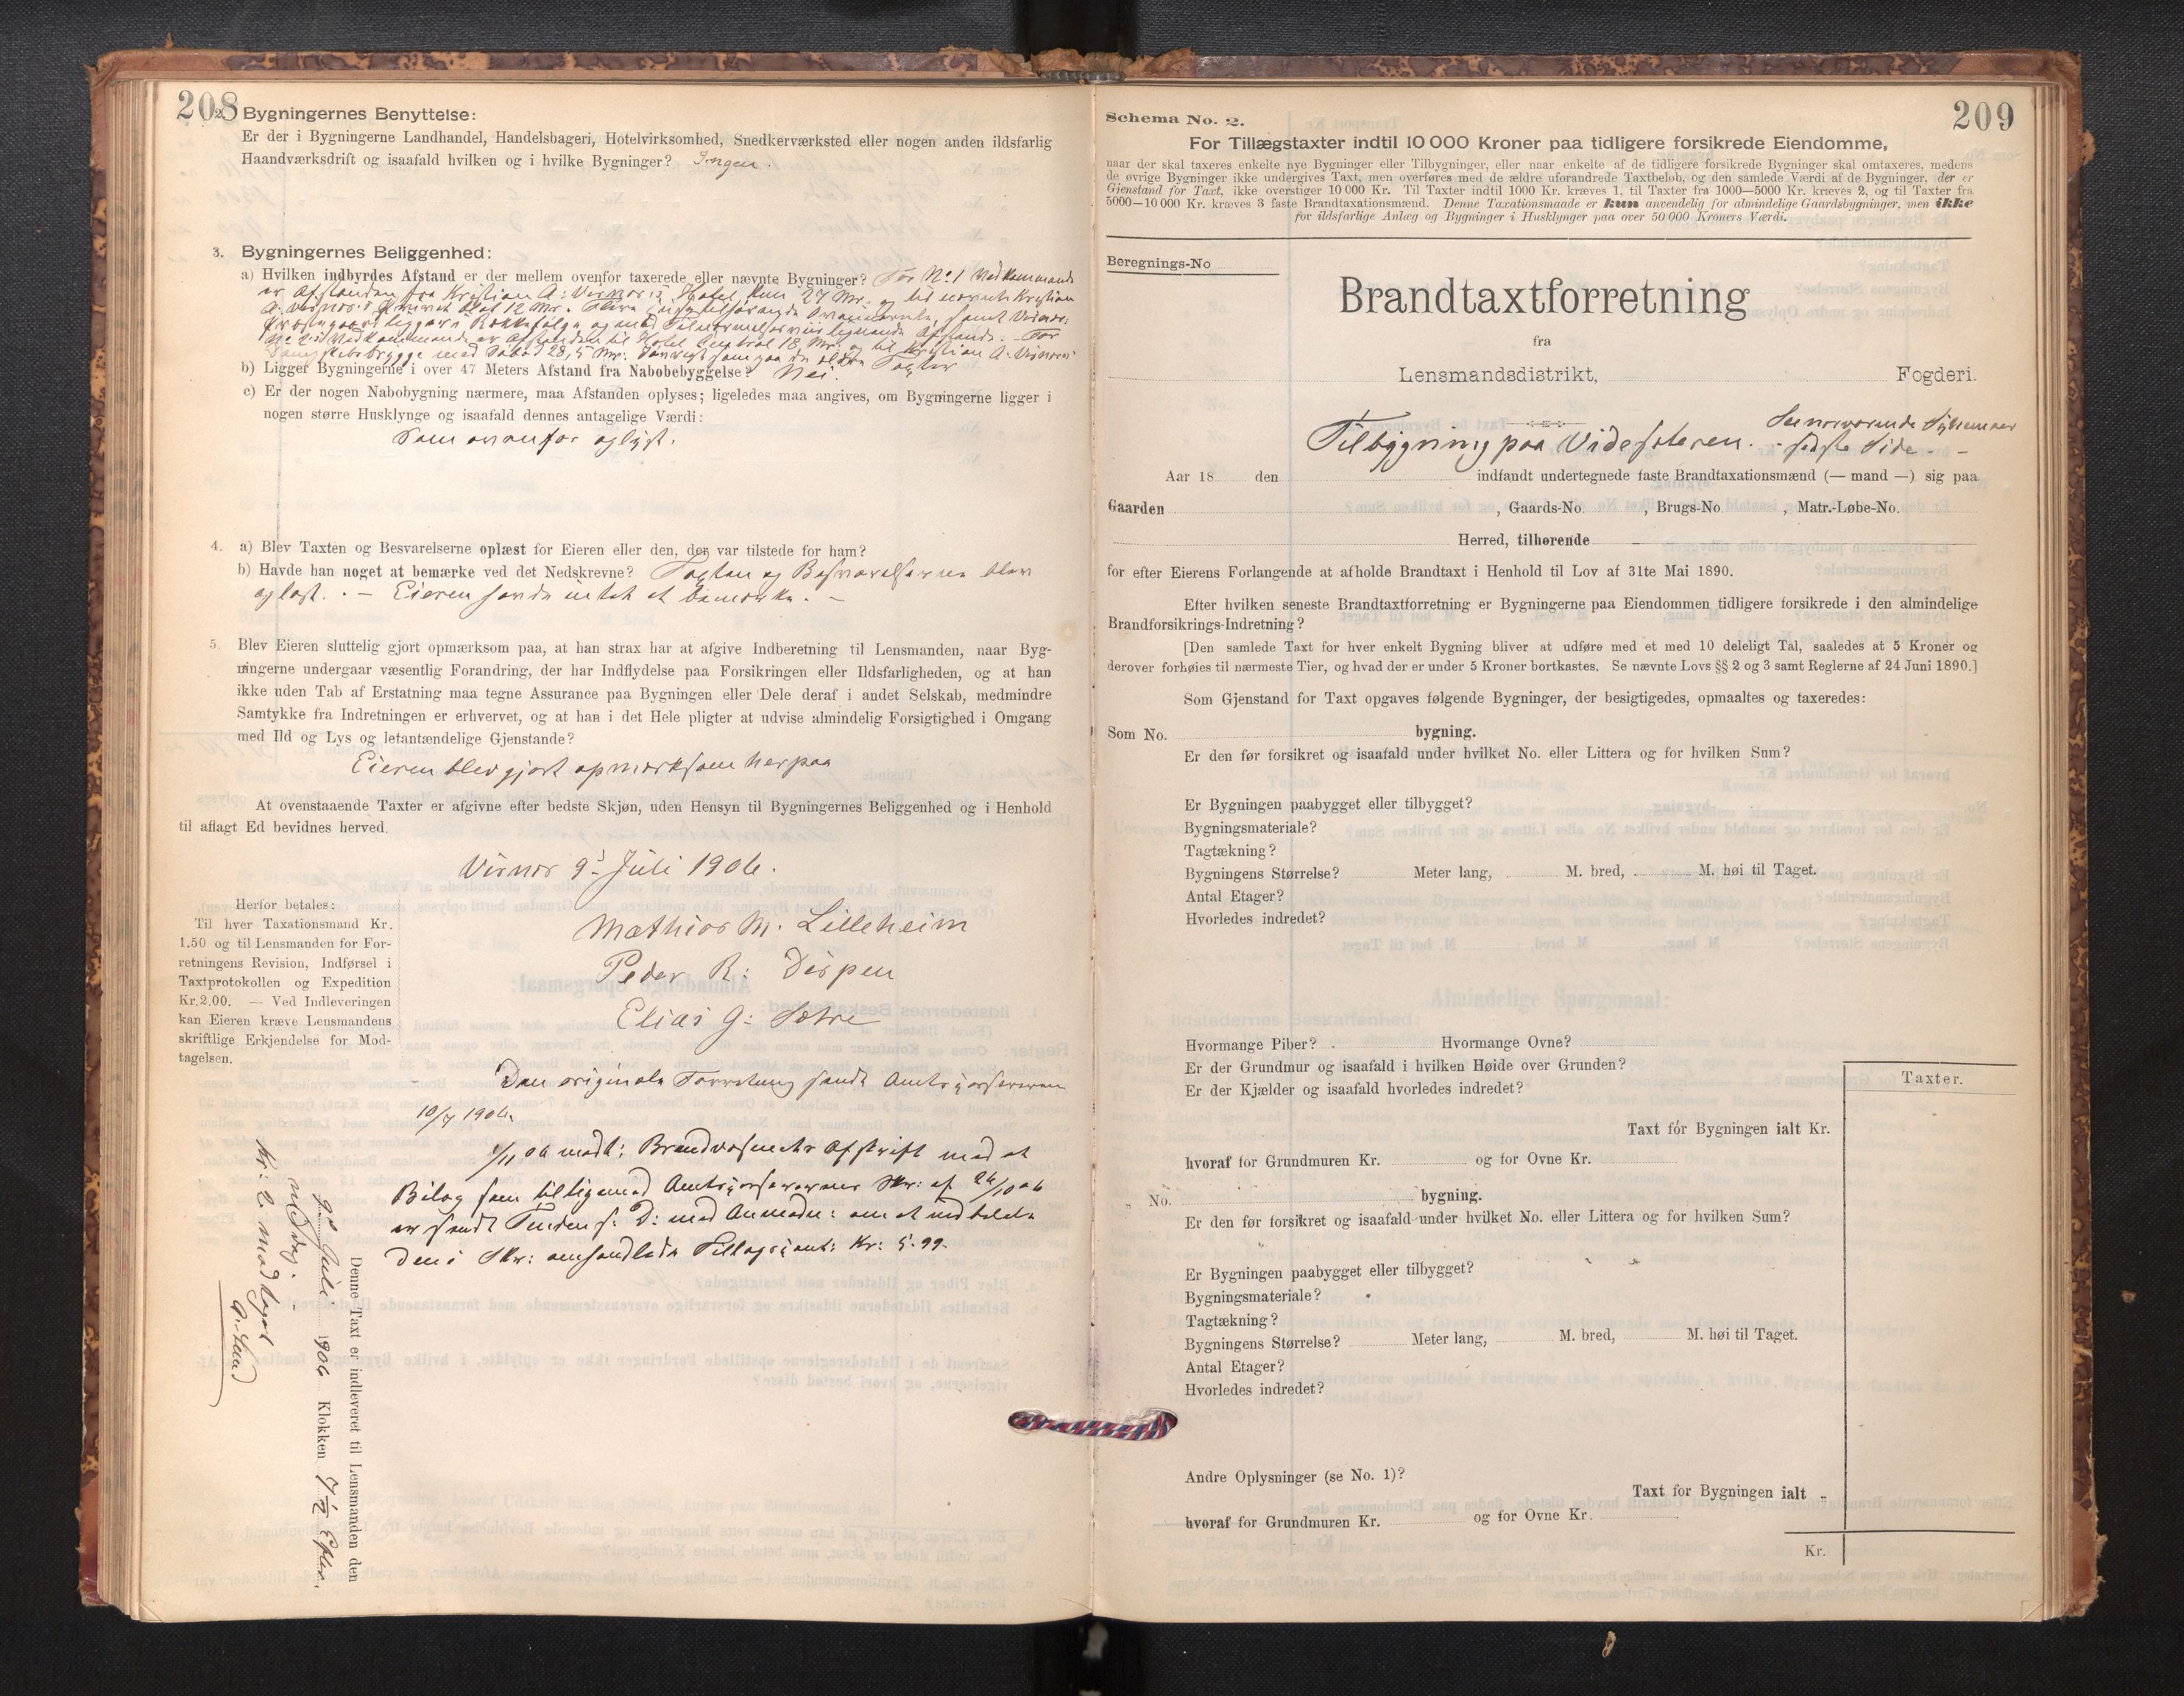 208
2. Bygningernes Benyttelse:
Er der i Bygningerne Landhandel, Handelsbageri, Hotelvirksomhed, Snedkerværksted eller nogen anden ildsfarlig
Haandværksdrift og isaafald hvilken og i hvilke Bygninger? Ingen.
3. Bygningernes Beliggenhed:
a) Hvilken indbyrdes Afstand er der mellem ovenfor taxerede eller nævnte Bygninger? For No 1 Vedkommende
er Afstanden fra Kristian A: Visnes's Hotel kun 27 Mr. og til nævnte Kristian
A: Visnes's
ligger i Rækkefølge og med Afstande. For
No 2's Vedkommende er Afstanden til Hotel Central 18 Mr. og til Kristian A. Visnes's
Dampskibsbrygge med 28,5 Mr. som paa den ældre Taxter
b) Ligger Bygningerne i over 47 Meters Afstand fra Nabobebyggelse? Nei.
c) Er der nogen Nabobygning nærmere, maa Afstanden oplyses; ligeledes maa angives, om Bygningerne ligger i
nogen større Husklynge og isaafald dennes antagelige Værdi:
Som ovenfor oplyst.
4. a) Blev Taxten og Besvarelserne oplæst for Eieren eller den, der var tilstede for ham?
b) Havde han noget at bemærke ved det Nedskrevne? Taxten og Besvarelserne blev
oplæst. - Eieren havde intet at bemærke. -
5. Blev Eieren sluttelig gjort opmærksom paa, at han strax har at afgive Indberetning til Lensmanden, naar Byg-
ningerne undergaar væsentlig Forandring, der har Indflydelse paa Forsikringen eller Ildsfarligheden, og at han
ikke uden Tab af Erstatning maa tegne Assurance paa Bygningen eller Dele deraf i andet Selskab, medmindre
Samtykke fra Indretningen er erhvervet, og at han i det Hele pligter at udvise almindelig Forsigtighed i Omgang
med Ild og Lys og letantændelige Gjenstande?
Eieren blev gjort opmærksom herpaa
At ovenstaaende Taxter er afgivne efter bedste Skjøn, uden Hensyn til Bygningernes Beliggenhed og i Henhold
til aflagt Ed bevidnes herved.
Visnes 9de Juli 1906.
Mathias M. Lilleheim
Peder R: Dispen
Elias G: Sætre
Herfor betales:
Til hver Taxationsmand Kr.
1.50 og til Lensmanden for For-
retningens Revision, Indførsel i
Taxtprotokollen og Expedition
Kr. 2.00. — Ved Indleveringen
kan Eieren kræve Lensmandens
skriftlige Erkjendelse for Mod-
tagelsen.
Den originale Forretning sendt Amtsforvareren
10/7 1906.
1/11 06 modt: Brandvæsenets Afskrift med et
Bilag som tilligemed Amtsforvarerens Skr: af 26/10 06
er sendt D: med Anmodn: om at indbetale
den i Skr: omhandlede Tillægs Kr: 5.99.
Denne Taxt er indleveret til Lensmanden den
9de Juli 1906 Klokken 7 1/2 Efter-
middag.
Kr: 2 modtaget
209
Schema No. 2.
For Tillægstaxter indtil 10 000 Kroner paa tidligere forsikrede Eiendomme,
naar der skal taxeres enkelte nye Bygninger eller Tilbygninger, eller naar enkelte af de tidligere forsikrede Bygninger skal omtaxeres, medens
de øvrige Bygninger ikke undergives Taxt, men overføres med de ældre uforandrede Taxtbeløb, og den samlede Værdi af de Bygninger, der er
Gjenstand for Taxt, ikke overstiger 10 000 Kr. Til Taxter indtil 1000 Kr. kræves 1, til Taxter fra 1000—5000 Kr. kræves 2, og til Taxter fra
5000—10 000 Kr. kræves 3 faste Brandtaxationsmænd. Denne Taxationsmaade er kun anvendelig for almindelige Gaardsbygninger, men ikke
for ildsfarlige Anlæg og Bygninger i Husklynger paa over 50 000 Kroners Værdi.
Beregnings-No
Brandtaxtforretning
fra
Lensmandsdistrikt, Fogderi.
Tilbygning paa Videseteren. -
sidste Side. -
Aar 18 den indfandt undertegnede faste Brandtaxationsmænd (— mand —) sig paa
Gaarden , Gaards-No. , Brugs-No. , Matr.-Løbe-No.
Herred, tilhørende
for efter Eierens Forlangende at afholde Brandtaxt i Henhold til Lov af 31te Mai 1890.
Efter hvilken seneste Brandtaxtforretning er Bygningerne paa Eiendommen tidligere forsikrede i den almindelige
Brandforsikrings-Indretning?
[Den samlede Taxt for hver enkelt Bygning bliver at udføre med et med 10 deleligt Tal, saaledes at 5 Kroner og
derover forhøies til nærmeste Tier, og hvad der er under 5 Kroner bortkastes. Se nævnte Lovs §§ 2 og 3 samt Reglerne af 24 Juni 1890.]
Som Gjenstand for Taxt opgaves følgende Bygninger, der besigtigedes, opmaaltes og taxeredes:
Som No. bygning.
Er den før forsikret og isaafald under hvilket No. eller Littera og for hvilken Sum?
Er Bygningen paabygget eller tilbygget?
Bygningsmateriale?
Tagtækning?
Bygningens Størrelse? Meter lang, M. bred, M. høi til Taget.
Antal Etager?
Hvorledes indredet?
Hvormange Piber? Hvormange Ovne?
Er der Grundmur og isaafald i hvilken Høide over Grunden?
Er der Kjælder og isaafald hvorledes indredet?
Taxter.
Taxt for Bygningen ialt Kr.
hvoraf for Grundmuren Kr. og for Ovne Kr.
No. bygning.
Er den før forsikret og isaafald under hvilket No. eller Littera og for hvilken Sum?
Er Bygningen paabygget eller tilbygget?
Bygningsmateriale?
Tagtækning?
Bygningens Størrelse? Meter lang, M. bred, M. høi til Taget.
Antal Etager?
Hvorledes indredet?
Andre Oplysninger (se No. 1)?
Taxt for Bygningen ialt „
hvoraf for Grundmuren Kr. og for Ovne Kr.
Kr.